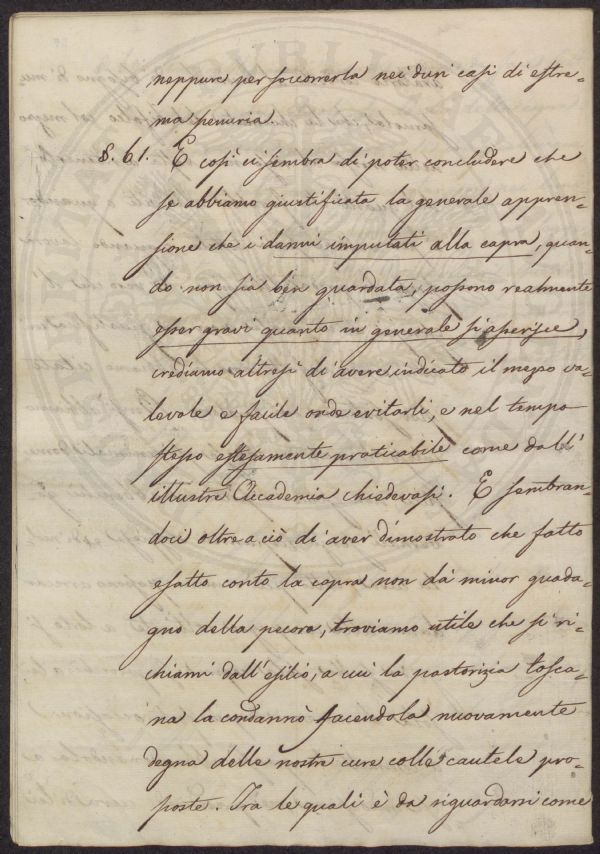 neppure per soccorrerla nei duri casi di estre-
ma penuria.
§. 61. E così ci sembra di poter concludere che
se abbiamo giustificata la generale appren-
sione che i danni imputati alla capra, quan-
do non sia ben guardata, possono realmente
esser gravi quanto in generale si asserisce,
crediamo altresì di avere indicato il mezzo va-
levole e facile onde evitarli, e nel tempo
stesso estesamente praticabile come dall'
illustre Accademia chiedevasi. E sembran-
doci oltre a ciò di aver dimostrato che fatto
esatto conto la capra non dà minor guada-
gno della pecora, troviamo utile che si ri-
chiami dall'esilio, a cui la pastorizia tosca-
na la condannò facendola nuovamente
degna delle nostre cure colle cautele pro-
poste. Tra le quali è da riguardarsi come